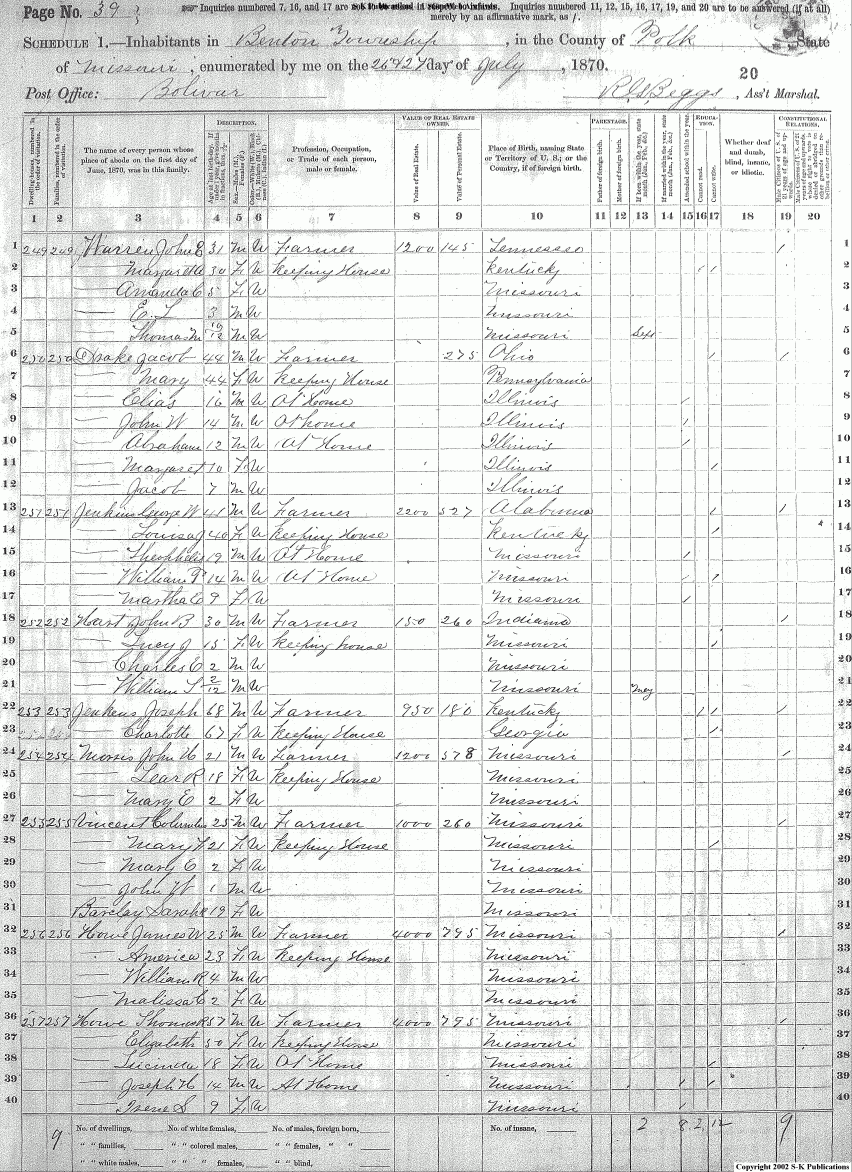 Page No. 39
Inquiries numbered 7, 16, and 17 are not to be asked in respect to infants. Inquiries numbered 11, 12, 15, 16, 17, 19, and 20 are to be answered (if at all)
merely by an affirmative mark, as /.
SCHEDULE 1.—Inhabitants in Benton Township, in the County of Polk State
of Missouri, enumerated by me on the 26 & 27 day of July, 1870.
20
Post Office: Bolivar R S Beggs, Ass't Marshal.
DESCRIPTION. VALUE OF REAL ESTATE OWNED. PARENTAGE. EDUCATION. CONSTITUTIONAL RELATIONS.
The name of every person whose place of abode on the first day of June, 1870, was in this family. Profession, Occupation, or Trade of each person, male or female. Value of Real Estate. Value of Personal Estate. Place of Birth, naming State or Territory of U. S.; or the Country, if of foreign birth. Father of foreign birth. Mother of foreign birth. Attended school within the year. Cannot read. Cannot write. Whether deaf and dumb, blind, insane, or idiotic.
1 2 3 4 5 6 7 8 9 10 11 12 13 14 15 16 17 18 19 20
1 249 249 Warren John E 31 M W Farmer 1200 145 Tennessee / 1
2 —— Margarett 30 F W Keeping House Kentucky / / 2
3 —— Amanda C 5 F W Missouri 3
4 —— E. L 3 M W Missouri 4
5 —— Thomas M 10/12 M W Missouri Sept 5
6 250 250 Drake Jacob 44 M W Farmer 275 Ohio / / 6
7 —— Mary 44 F W Keeping House Pennsylvania 7
8 —— Elias 16 M W At Home Illinois / 8
9 —— John W 14 M W At home Illinois / 9
10 —— Abraham 12 M W At Home Illinois / 10
11 —— Margaret 10 F W Illinois / 11
12 —— Jacob 7 M W Illinois 12
13 251 251 Jenkins George W 45 M W Farmer 2200 527 Alabama / / 13
14 —— Louisa J 40 F W Keeping House Kentucky / 14
15 —— 19 M W At Home Missouri / 15
16 —— William P 14 M W At Home Missouri / / 16
17 —— Martha C 9 F W Missouri / 17
18 252 252 Hart John B 30 M W Farmer 150 260 Indiana / 18
19 —— Lucy J 15 F W Keeping house Missouri / 19
20 —— Charles C 2 M W Missouri 20
21 —— William S 2/12 M W Missouri May 21
22 253 253 Jenkens Joseph 68 M W Farmer 950 180 Kentucky / / / 22
23 —— Charlotte 67 F W Keeping House Georgia / 23
24 254 254 Morris John H 21 M W Farmer 1200 578 Missouri / 24
25 —— Lear R 18 F W Keeping House Missouri 25
26 —— Mary E 2 F W Missouri 26
27 255 255 Vincent Columbus 25 M W Farmer 1000 260 Missouri / 27
28 —— Mary F 21 F W Keeping House Missouri / 28
29 —— Mary E 2 F W Missouri 29
30 —— John W 1 M W Missouri 30
31 Barclay Sarah 19 F W Missouri 31
32 256 256 Howe James W 25 M W Farmer 4000 795 Missouri / 32
33 —— America 23 F W Keeping House Missouri 33
34 —— William R 4 M W Missouri 34
35 —— Malissa C 2 F W Missouri 35
36 257 257 Howe Thomas R 57 M W Farmer 4000 795 Missouri / 36
37 —— Elizabeth 50 F W Keeping House Missouri 37
38 —— Lucinda 18 F W At Home Missouri / 38
39 —— Joseph H 14 M W At Home Missouri / / 39
40 —— Irene S 9 F W Missouri / 40
9 No. of dwellings, No. of white females, No. of males, foreign born, No. of insane, 2 8 2 12 9
" " families, " " colored males, " " females, " "
" " white males, " " " females, " " blind,
Copyright 2002 S-K Publications